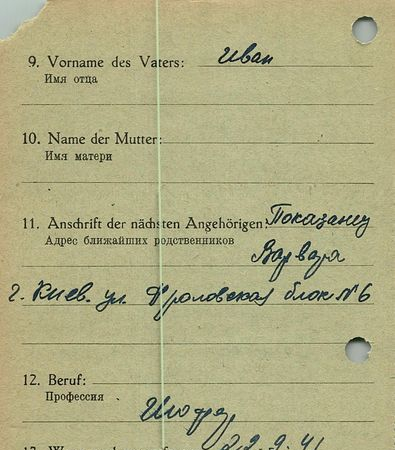 9. Vorname des Vaters: Иван
Имя отца
10. Name der Mutter:
Имя матери
11. Anschrift der nächsten Angehörigen:
Адрес ближайших родственников
Варвара
г. Киев. ул. Фроловская блок №6
12. Beruf:
Профессия
Шофер
22.9.41